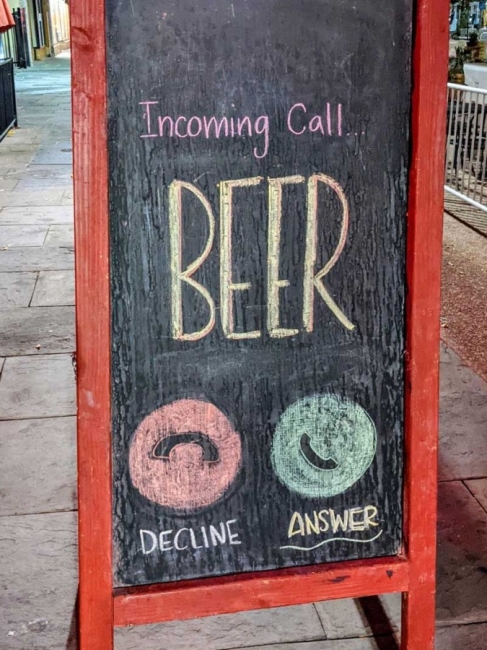 Incoming Call...
BEER
DECLINE
ANSWER